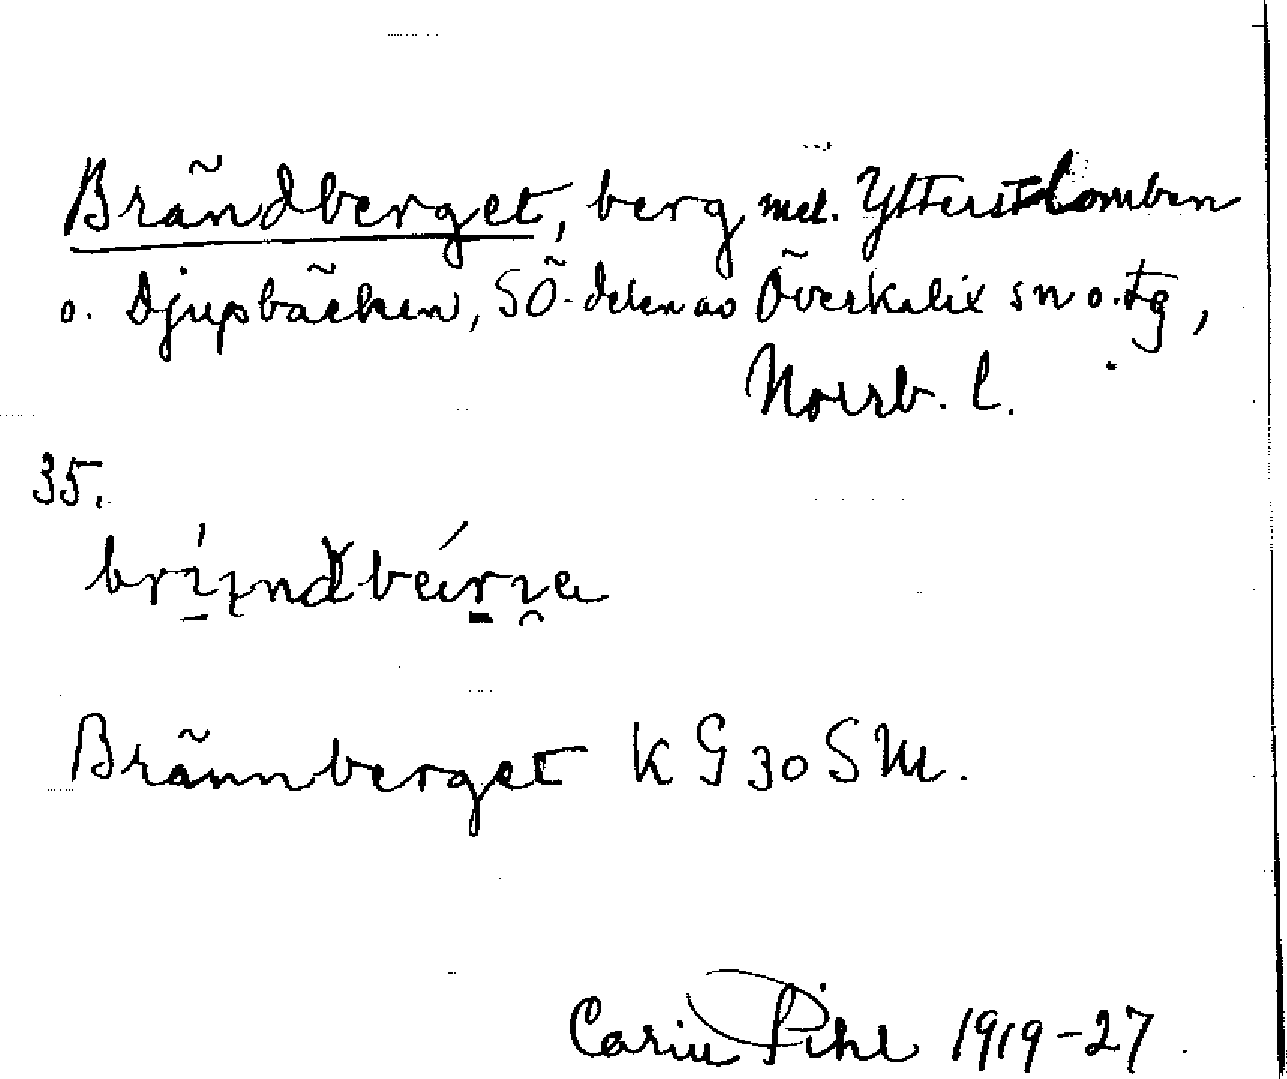 Brändberget, berg mel. Ytterstlomben
o. Djupbäcken, SÖ-delen av Överkalix sn o. tg,
Norrb. l.
35.
Brännberget KG 30 SM.
Carin Pihl 1919-27.